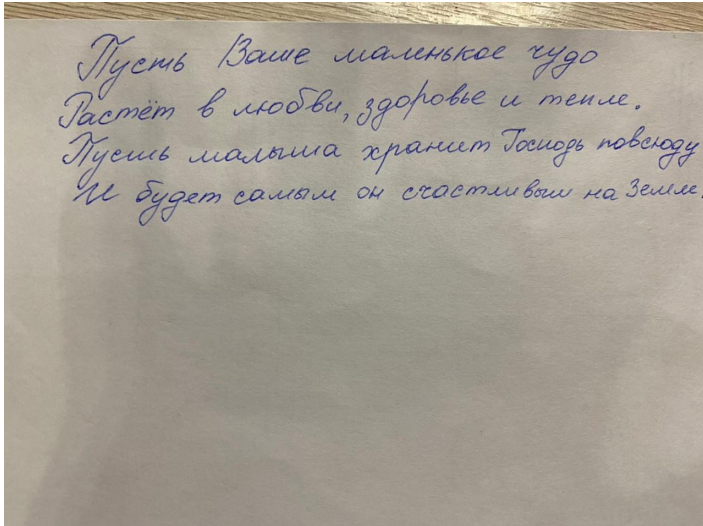 Пусть Ваше маленькое чудо
Растёт в любви, здоровье и тепле.
Пусть малыша хранит Господь повсюду
И будет самым он счастливым на Земле.